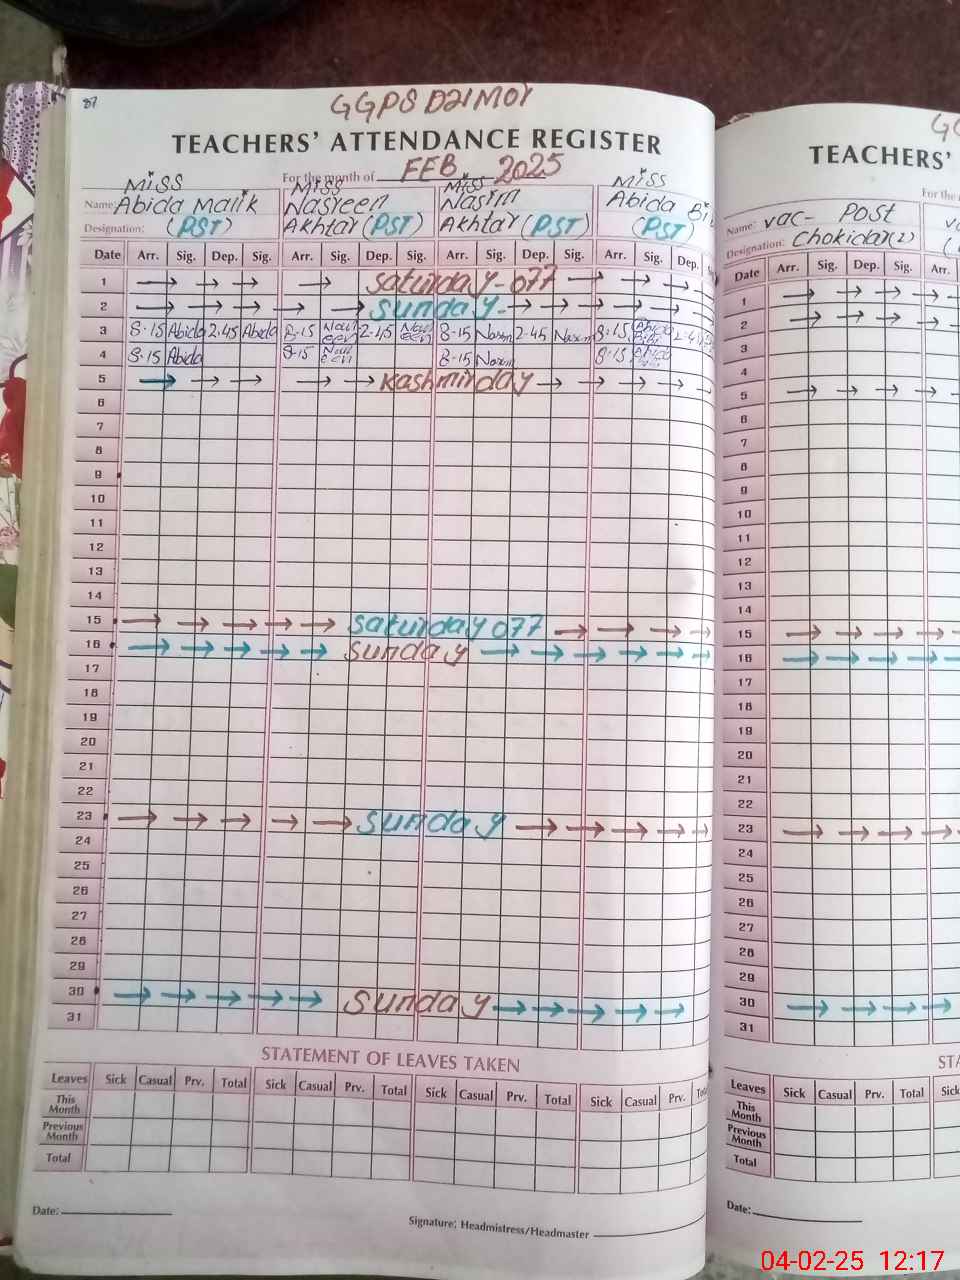 87
GGPS D21 MOr
TEACHERS' ATTENDANCE REGISTER
For the month of FEB 2025
Name: Miss Abida Malik Miss Nasreen Akhtar Miss Nasim Akhtar Miss Abida Bi
Designation: (PST) (PST) (PST) (PST)
Date Arr. Sig. Dep. Sig. Arr. Sig. Dep. Sig. Arr. Sig. Dep. Sig. Arr. Sig. Dep.
1 → → → → Saturday-off → → → →
2 → → → → → Sunday- → → → → →
3 8-15 Abida 2.45 Abida 8-15 2-45 8-15 Nasim 2-45 Nasim 8-15 Abida Bibi
4 8-15 Abida 8-15 8-15 Nasim 8-15 Abida
5 → → → → → Kashmir day → → → → →
6
7
8
9
10
11
12
13
14
15 → → → → → Saturday off → → → →
16 → → → → → Sunday → → → → → →
17
18
19
20
21
22
23 → → → → → Sunday → → → → →
24
25
26
27
28
29
30 → → → → → Sunday → → → → →
31
STATEMENT OF LEAVES TAKEN
Leaves Sick Casual Prv. Total Sick Casual Prv. Total Sick Casual Prv. Total Sick Casual Prv.
This Month
Previous Month
Total
Date:
Signature: Headmistress/Headmaster
TEACHERS'
For the
Name: Vac- Post
Designation: Chokidar(2)
Date Arr. Sig. Dep. Sig. Arr.
1 → → → →
2 → → → →
3
4
5 → → → →
6
7
8
9
10
11
12
13
14
15 → → → →
16 → → → →
17
18
19
20
21
22
23 → → → →
24
25
26
27
28
29
30 → → → →
31
STA
Leaves Sick Casual Prv. Total Sick
This Month
Previous Month
Total
Date:
04-02-25 12:17